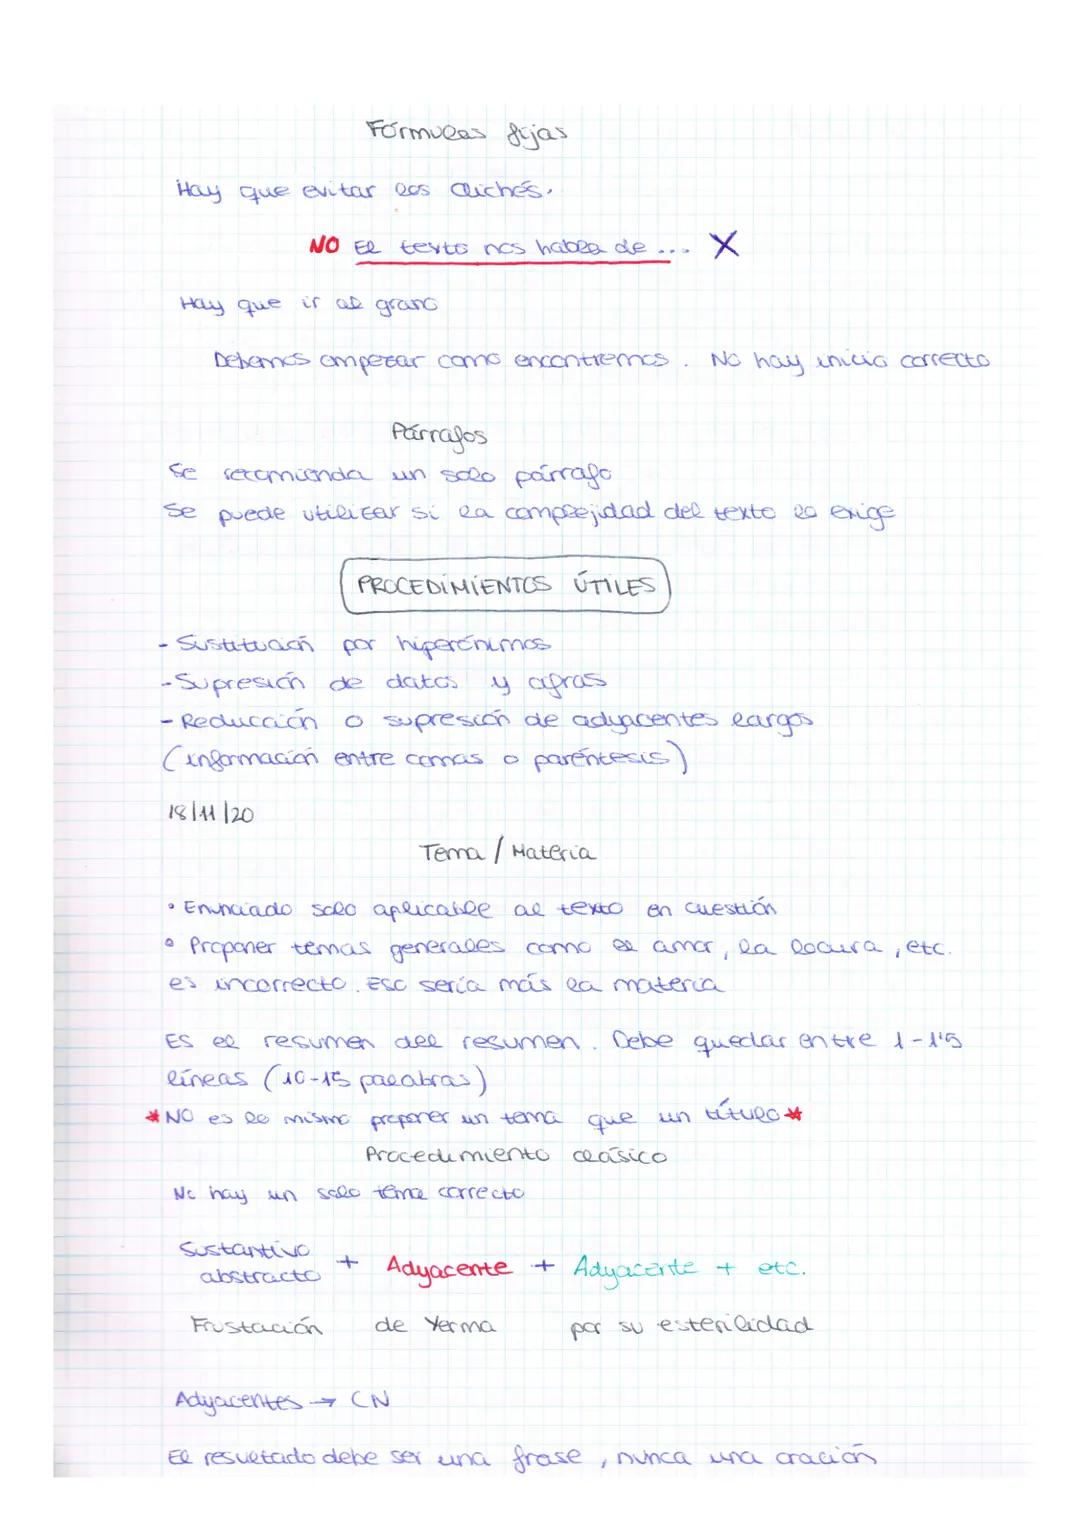 Fórmulas fijas
Hay que evitar los clichés.
NO El texto nos habla de ... X
Hay que ir al grano
Debemos empezar como encontremos. No hay inicio correcto
Párrafos
Se recomienda un solo párrafo
Se puede utilizar si la complejidad del texto lo exige
PROCEDIMIENTOS ÚTILES
- Sustitución por hiperónimos
- Supresión de datos y cifras
- Reducción o supresión de adyacentes largos
(información entre comas o paréntesis)
18/11/20
Tema / Materia
• Enunciado solo aplicable al texto en cuestión
• Proponer temas generales como el amor, la locura, etc.
es incorrecto. Eso sería más la materia
Es el resumen del resumen. Debe quedar entre 1-1'5
líneas (10-15 palabras)
* NO es lo mismo proponer un tema que un título *
Procedimiento clásico
No hay un solo tema correcto
Sustantivo abstracto + Adyacente + Adyacente + etc.
Frustación de Yerma por su esterilidad
Adyacentes → CN
El resultado debe ser una frase, nunca una oración